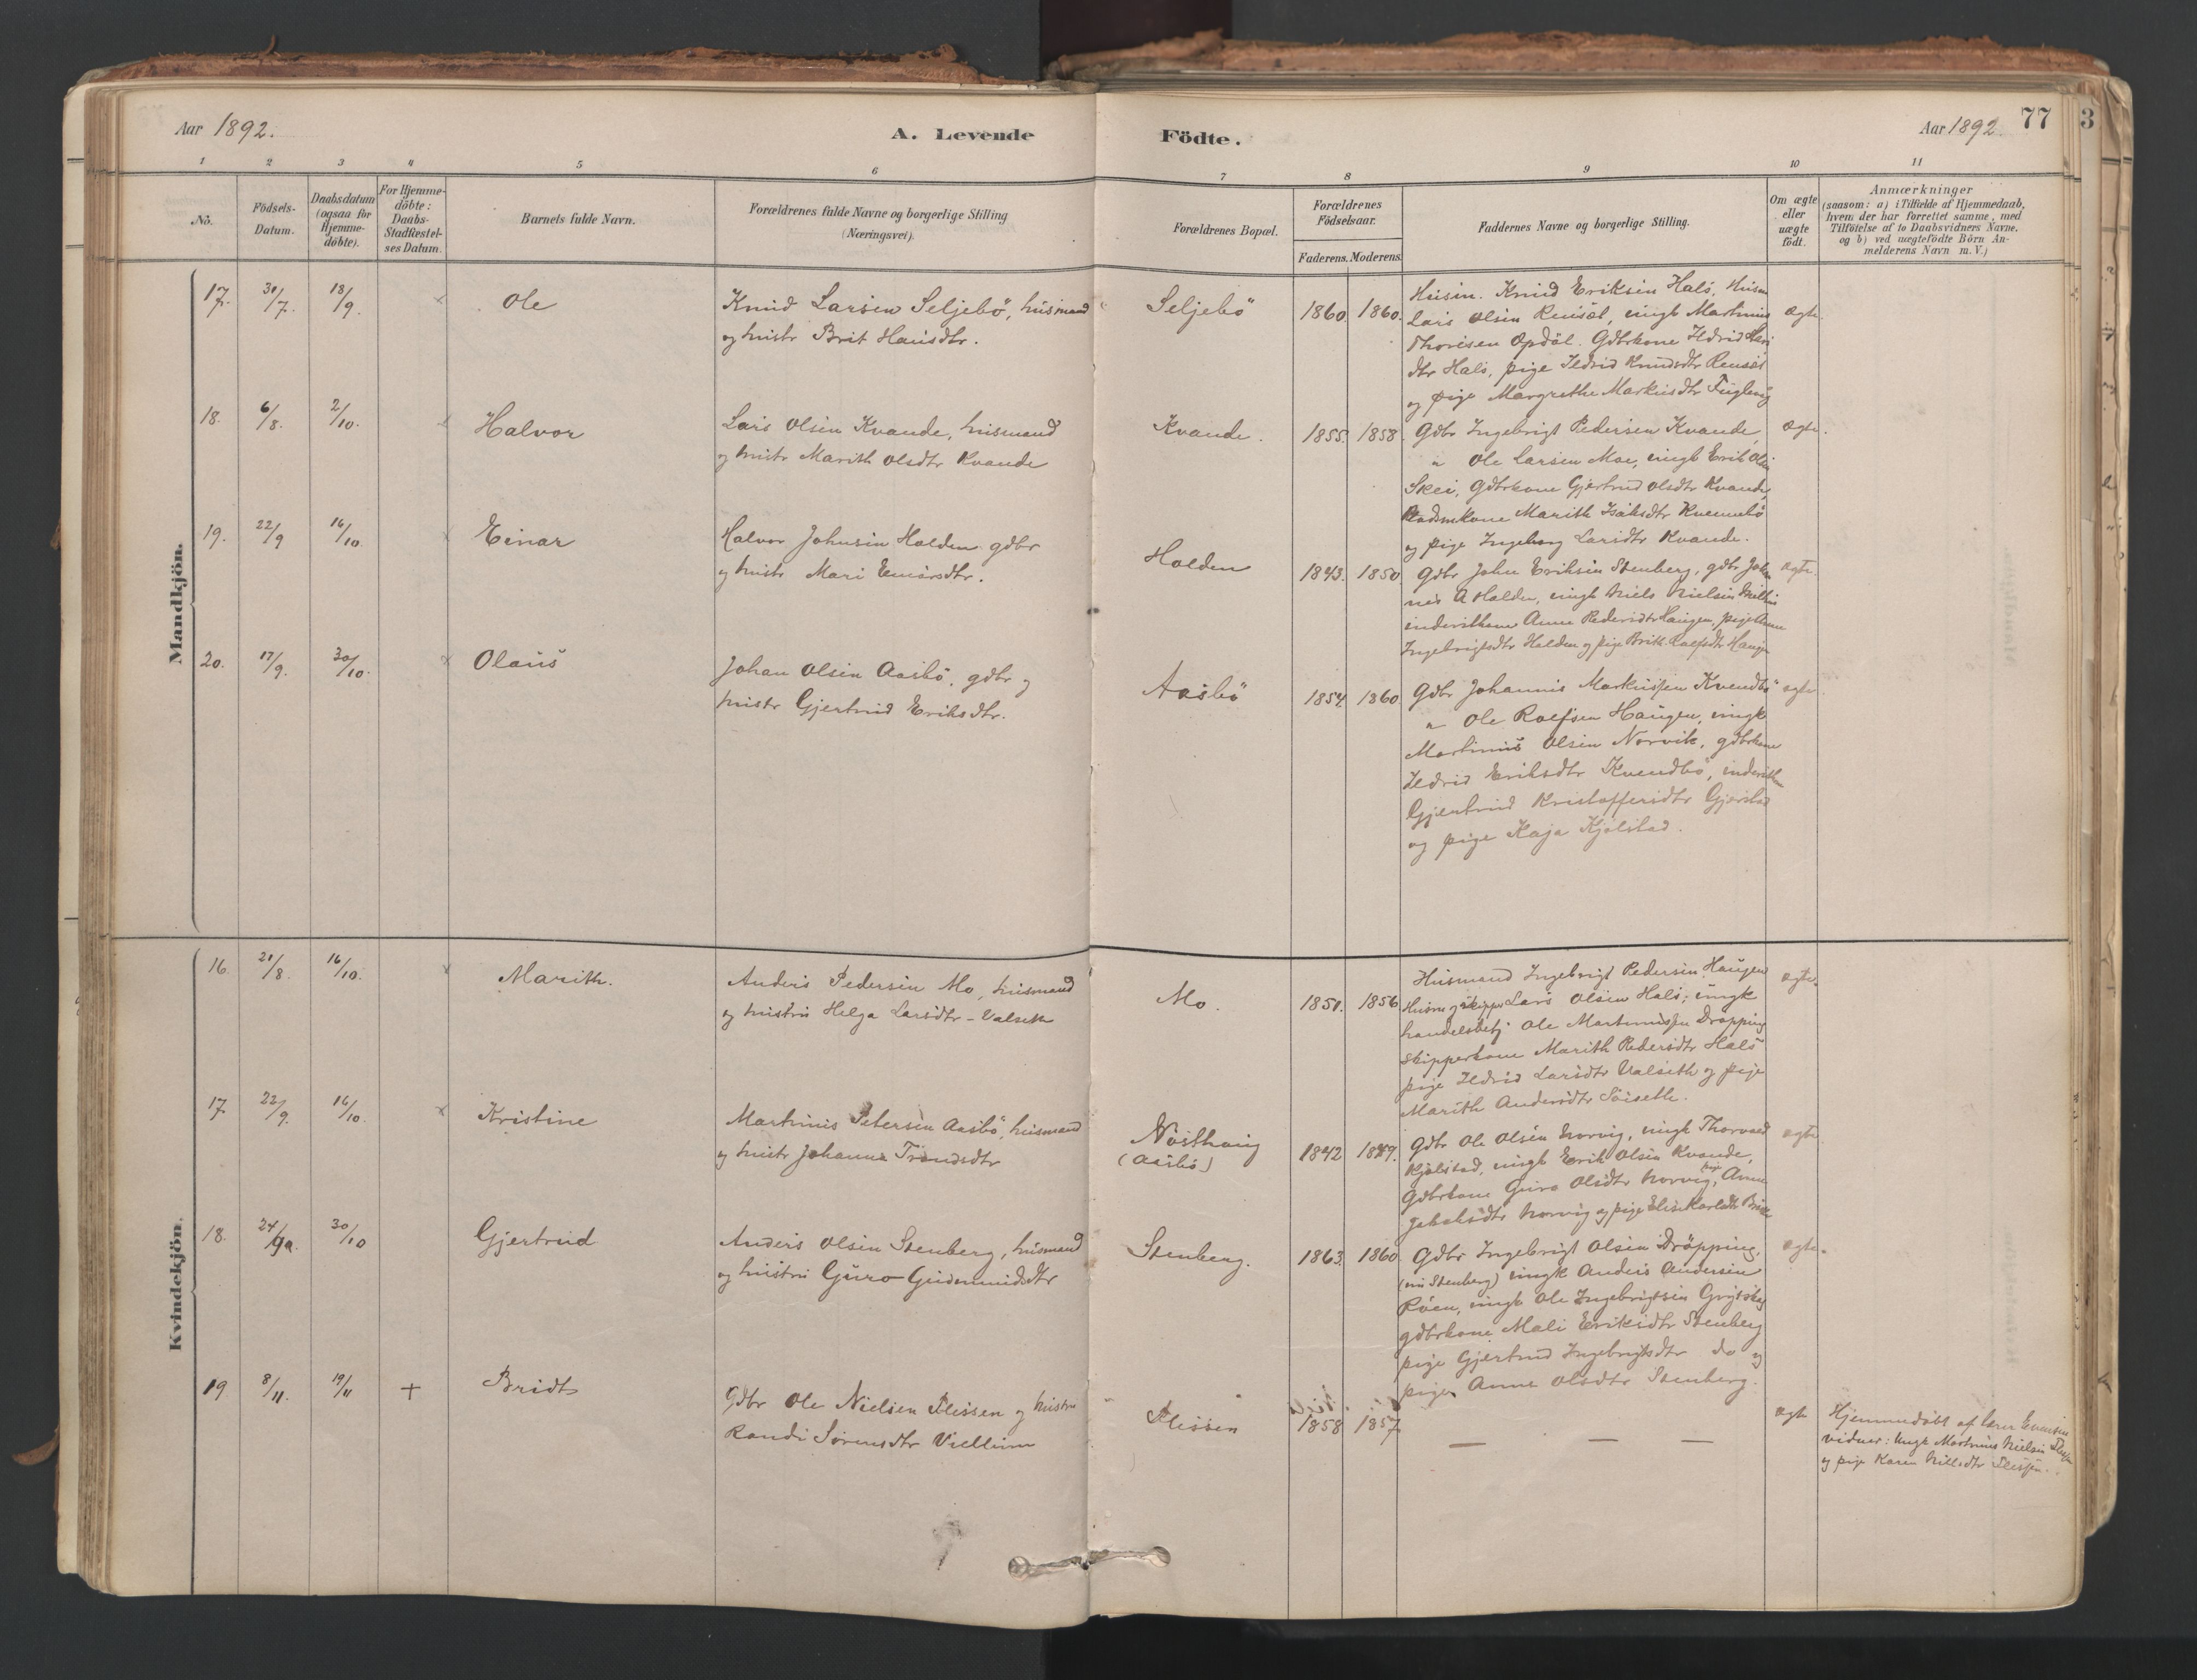 Aar 1892.
A. Levende
Födte.
Aar 1892.
77
3
1 2 3 4 5 6 7 8 9 10 11
No.
Födsels-
Datum.
Daabsdatum
(ogsaa for
Hjemme-
döbte).
For Hjemme-
döbte:
Daabs-
Stadfæstel-
ses Datum.
Barnets fulde Navn.
Forældrenes fulde Navne og borgerlige Stilling
(Næringsvei).
Forældrenes Bopæl.
Forældrenes
Födselsaar.
Faderens. Moderens.
Faddernes Navne og borgerlige Stilling.
Om ægte
eller
uægte
födt.
Anmærkninger
(saasom: a) i Tilfælde af Hjemmedaab,
hvem der har forrettet samme, med
Tilföielse af to Daabsvidners Navne,
og b) ved uægtefödte Börn An-
melderens Navn m.V.)
Mandkjön.
17. 30/7. 18/9. Ole
Knud Larsen Seljebö, husmand
og hustr Brit Hansdtr.
Seljebö 1860. 1860.
Husm. Knud Eriksen Hals, Husm
Lars Olsen Rensöt, ungk Martinus
Thoresen Opdöl. Gdbrkone Ildrid
dtr Hals, pige Ildrid Knudsdtr
og pige Margrethe Markusdtr Fuglevig
ægte.
18. 6/8. 2/10. Halvor
Lars Olsen Kvande, husmand
og hustr Marith Olsdtr Kvande
Kvande. 1855. 1858.
Gdbr Ingebrigt Pedersen Kvande,
" Ole Larsen Moe, ungk Erik Olsen
Skei, Gdbrkone Gjertrud Olsdtr Kvande,
Marith Isaksdtr Kvennebö
og pige Ingeborg Larsdtr Kvande.
ægte.
19. 22/9 16/10. Einar
Halvor Johnsen Holden gdbr
og hustr Mari Einarsdtr.
Holden 1843. 1850
Gdbr John Eriksen Stenberg, gdbr Johan
nes A Halden, ungk Niels Nielsen
Anne Pedersdtr Haugen, pige Anne
Ingebrigtsdtr Holden og pige Brith Roelfsdtr Haugen
ægte.
20. 17/9. 30/10. Olaus
Johan Olsen Aasbö, gdbr og
hustr Gjertrud Eriksdtr.
Aasbö 1854. 1860
Gdbr Johannis Markussen Kvendbö
" Ole Roelfsen Haugen, ungk
Martinus Olsen Norvik, gdbrkone
Ildrid Eriksdtr Kvendbö,
Gjertrud Kristoffersdtr Gjerstad
og pige Kaja Kjölstad.
ægte
Kvindekjön.
16. 21/8. 16/10. Marith.
Anders Pedersen Mo, husmand
og hustru Helga Larsdtr - Valseth
Mo. 1851. 1856
Husmand Ingebrigt Pedersen Haugen
Husm og skipper Lars Olsen Hals; ungk
handelsbetj Ole Martinussen Dröpping
Skipperkone Marith Pedersdtr Hals
pige Ildrid Larsdtr Valseth og pige
Marith Andersdtr
ægte.
17. 22/9. 16/10. Kristine
Martinus Petersen Aasbö, husmand
og hustr Johanna Trondsdtr
Nösthaug
(Aasbö) 1842 1849.
Gdbr Ole Olsen Norvig, ungk Thorvald
Kjölstad, ungk Erik Olsen Kvande,
Gdbrkone Guro Olsdtr Norvig, pige Anne
Jakobsdtr Norvig og pige Elise Karlsdtr
ægte
18. 24/9 30/10 Gjertrud
Anders Olsen Stenberg, husmand
og hustru Guro Gudmundsdtr
Stenberg. 1863. 1860.
Gdbr Ingebrigt Olsen Dröpping,
(nu Stenberg) ungk Anders Andersen
Röen, ungk Ole Ingebrigtsen
gdbrkone Mali Eriksdtr Stenberg
pige Gjertrud Ingebrigtsdtr do og
pige Anne Olsdtr Stenberg.
ægte.
19 8/11. 19/11 + Bridt
Gdbr Ole Nielsen Flessen og hustru
Randi Sörensdtr
Flessen 1858 1857.
— — —
ægte
Hjemmedöbt af lærer Evensen
vidner: Ungk Martinus Nielsen Flessen
og pige Karen Nilsdtr Flessen.